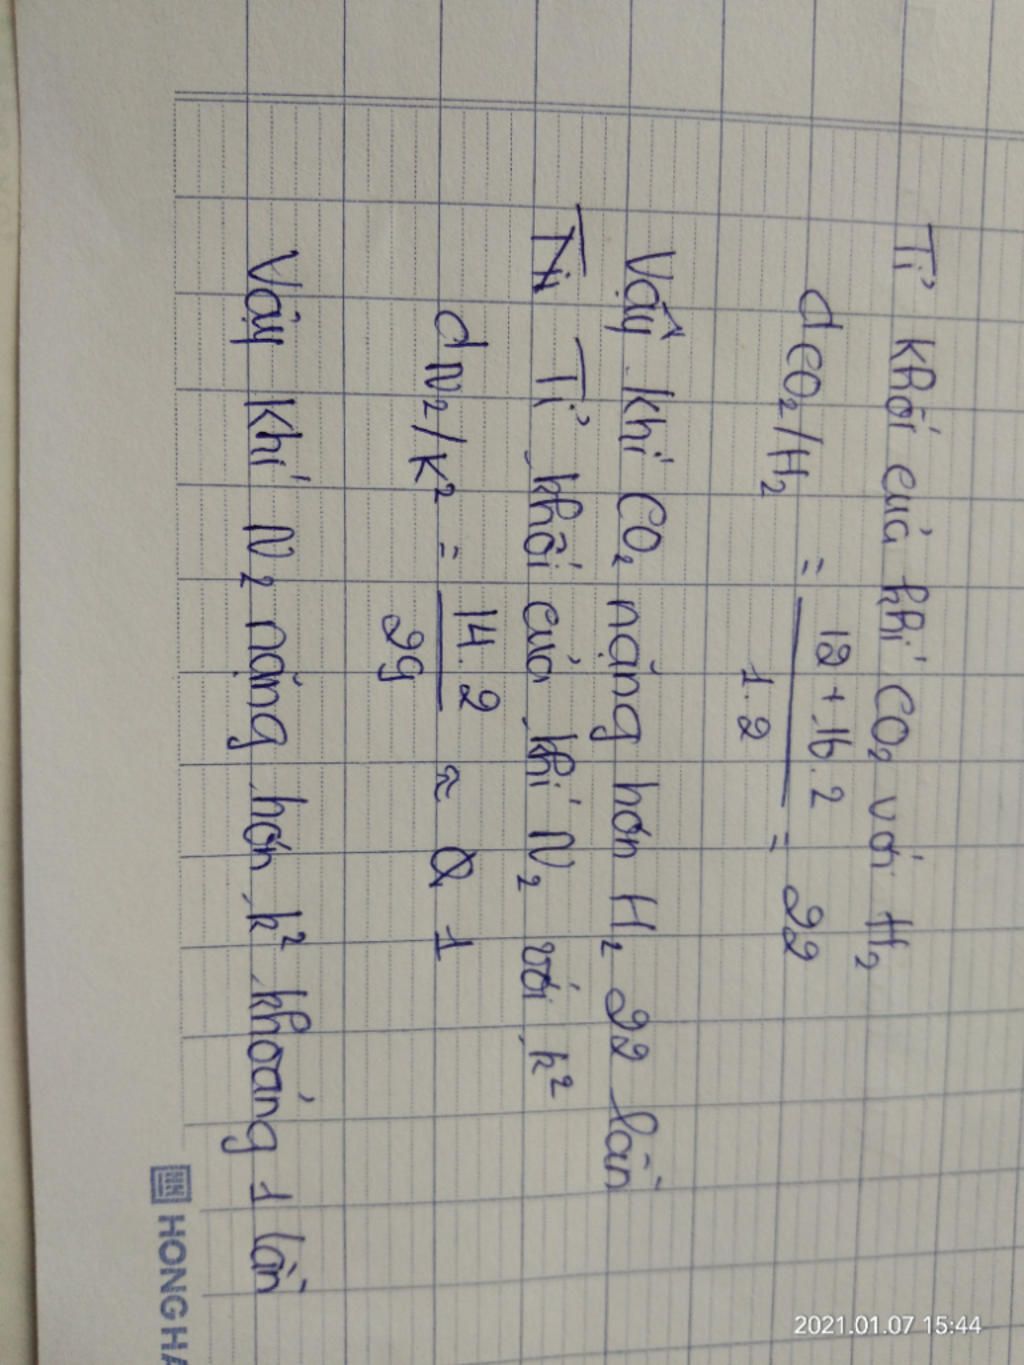 Tỉ khối của khí CO₂ với H₂
d CO₂/H₂ = 12 + 16.2 / 1.2 = 22
Vậy khí CO₂ nặng hơn H₂ 22 lần
Tỉ khối của khí N₂ với k²
d N₂/k² = 14.2 / 29 ≈ 1
Vậy khí N₂ nặng hơn k² khoảng 1 lần
HONG HA
2021.01.07 15:44